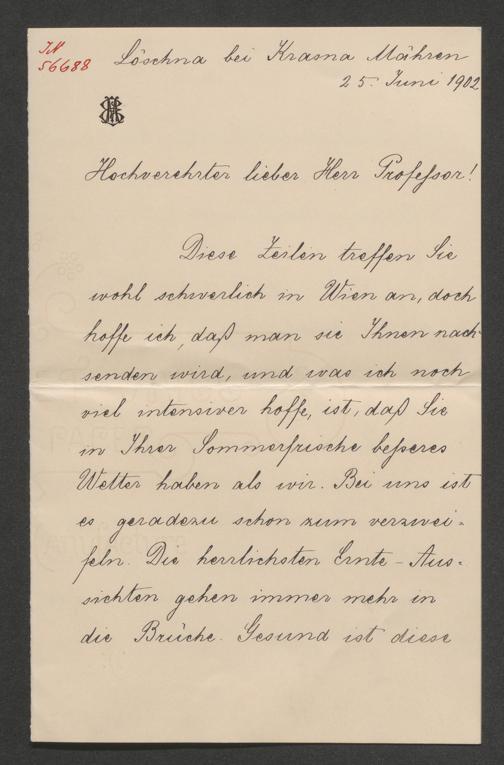 IN
56688
Löschna bei Krasna Mähren
25. Juni 1902
Hochverehrter lieber Herr Professor!
Diese Zeilen treffen Sie
wohl schwerlich in Wien an, doch
hoffe ich, daß man sie Ihnen nach-
senden wird, und was ich noch
viel intensiver hoffe, ist, daß Sie
in Ihrer Sommerfrische besseres
Wetter haben als wir. Bei uns ist
es geradezu schon zum verzwei-
feln. Die herrlichsten Ernte-Aus-
sichten gehen immer mehr in
die Brüche. Gesund ist diese